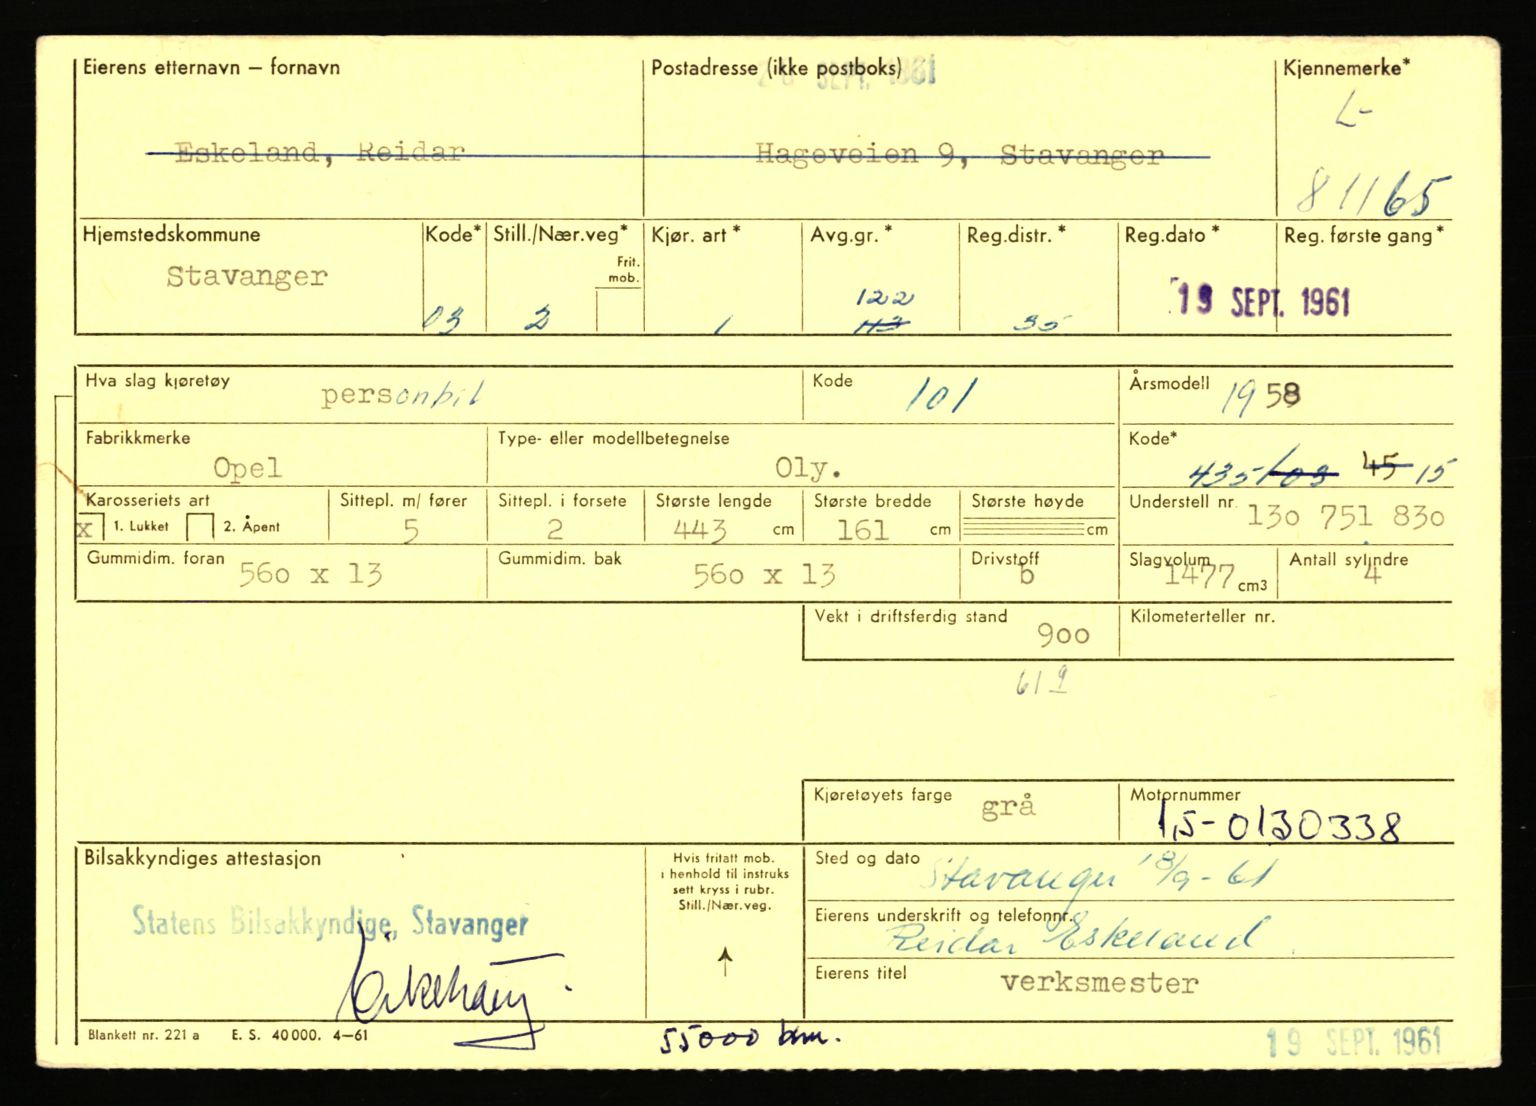 Eierens etternavn – fornavn
Postadresse (ikke postboks)
SEPT. 1961
Kjennemerke*
L-
Eskeland, Reidar
Hageveien 9, Stavanger
81165
Hjemstedskommune
Kode*
Still./Nær.veg*
Kjør. art *
Avg.gr. *
Reg.distr. *
Reg.dato *
Reg. første gang *
Frit.
mob.
Stavanger
03
2
1
122
113
35
19 SEPT. 1961
Hva slag kjøretøy
personbil
Kode
101
Årsmodell
1958
Fabrikkmerke
Opel
Type- eller modellbetegnelse
Oly.
Kode*
435/03 45 15
Karosseriets art
x 1. Lukket
2. Åpent
Sittepl. m/ fører
5
Sittepl. i forsete
2
Største lengde
443 cm
Største bredde
161 cm
Største høyde
cm
Understell nr.
130 751 830
Gummidim. foran
560 x 13
Gummidim. bak
560 x 13
Drivstoff
b
Slagvolum
1477 cm3
Antall sylindre
4
Vekt i driftsferdig stand
900
Kilometerteller nr.
61 9
Kjøretøyets farge
grå
Motornummer
1,5-0130338
Bilsakkyndiges attestasjon
Statens Bilsakkyndige, Stavanger
Hvis fritatt mob.
i henhold til instruks
sett kryss i rubr.
Still./Nær.veg.
Sted og dato
Stavanger 18/9-61
Eierens underskrift og telefonnr.
Reidar Eskeland
Eierens titel
verksmester
Blankett nr. 221 a E. S. 40 000. 4–61
55000 km.
19 SEPT. 1961